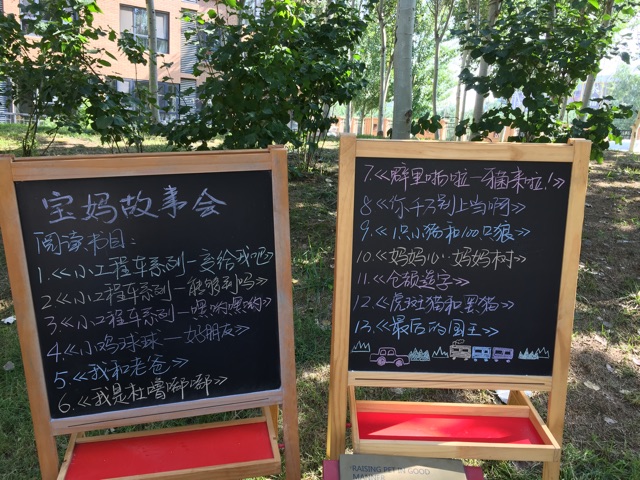 宝妈故事会
阅读书目:
1.《小工程车系列—交给我吧》
2《小工程车系列—能够到吗》
3《小工程车系列—嘿哟嘿哟》
4.《小鸡球球—好朋友》
5.《我和老爸》
6.《我是杜噜》
7.《噼里啪啦—猫来啦!》
8《你千万别上当啊》
9.《1只小猪和100只狼》
10《妈妈心·妈妈树》
11.《仓颉造字》
12.《虎斑猫和黑猫》
13.《最后的国王》
RAISING PET IN GOOD
MANNER